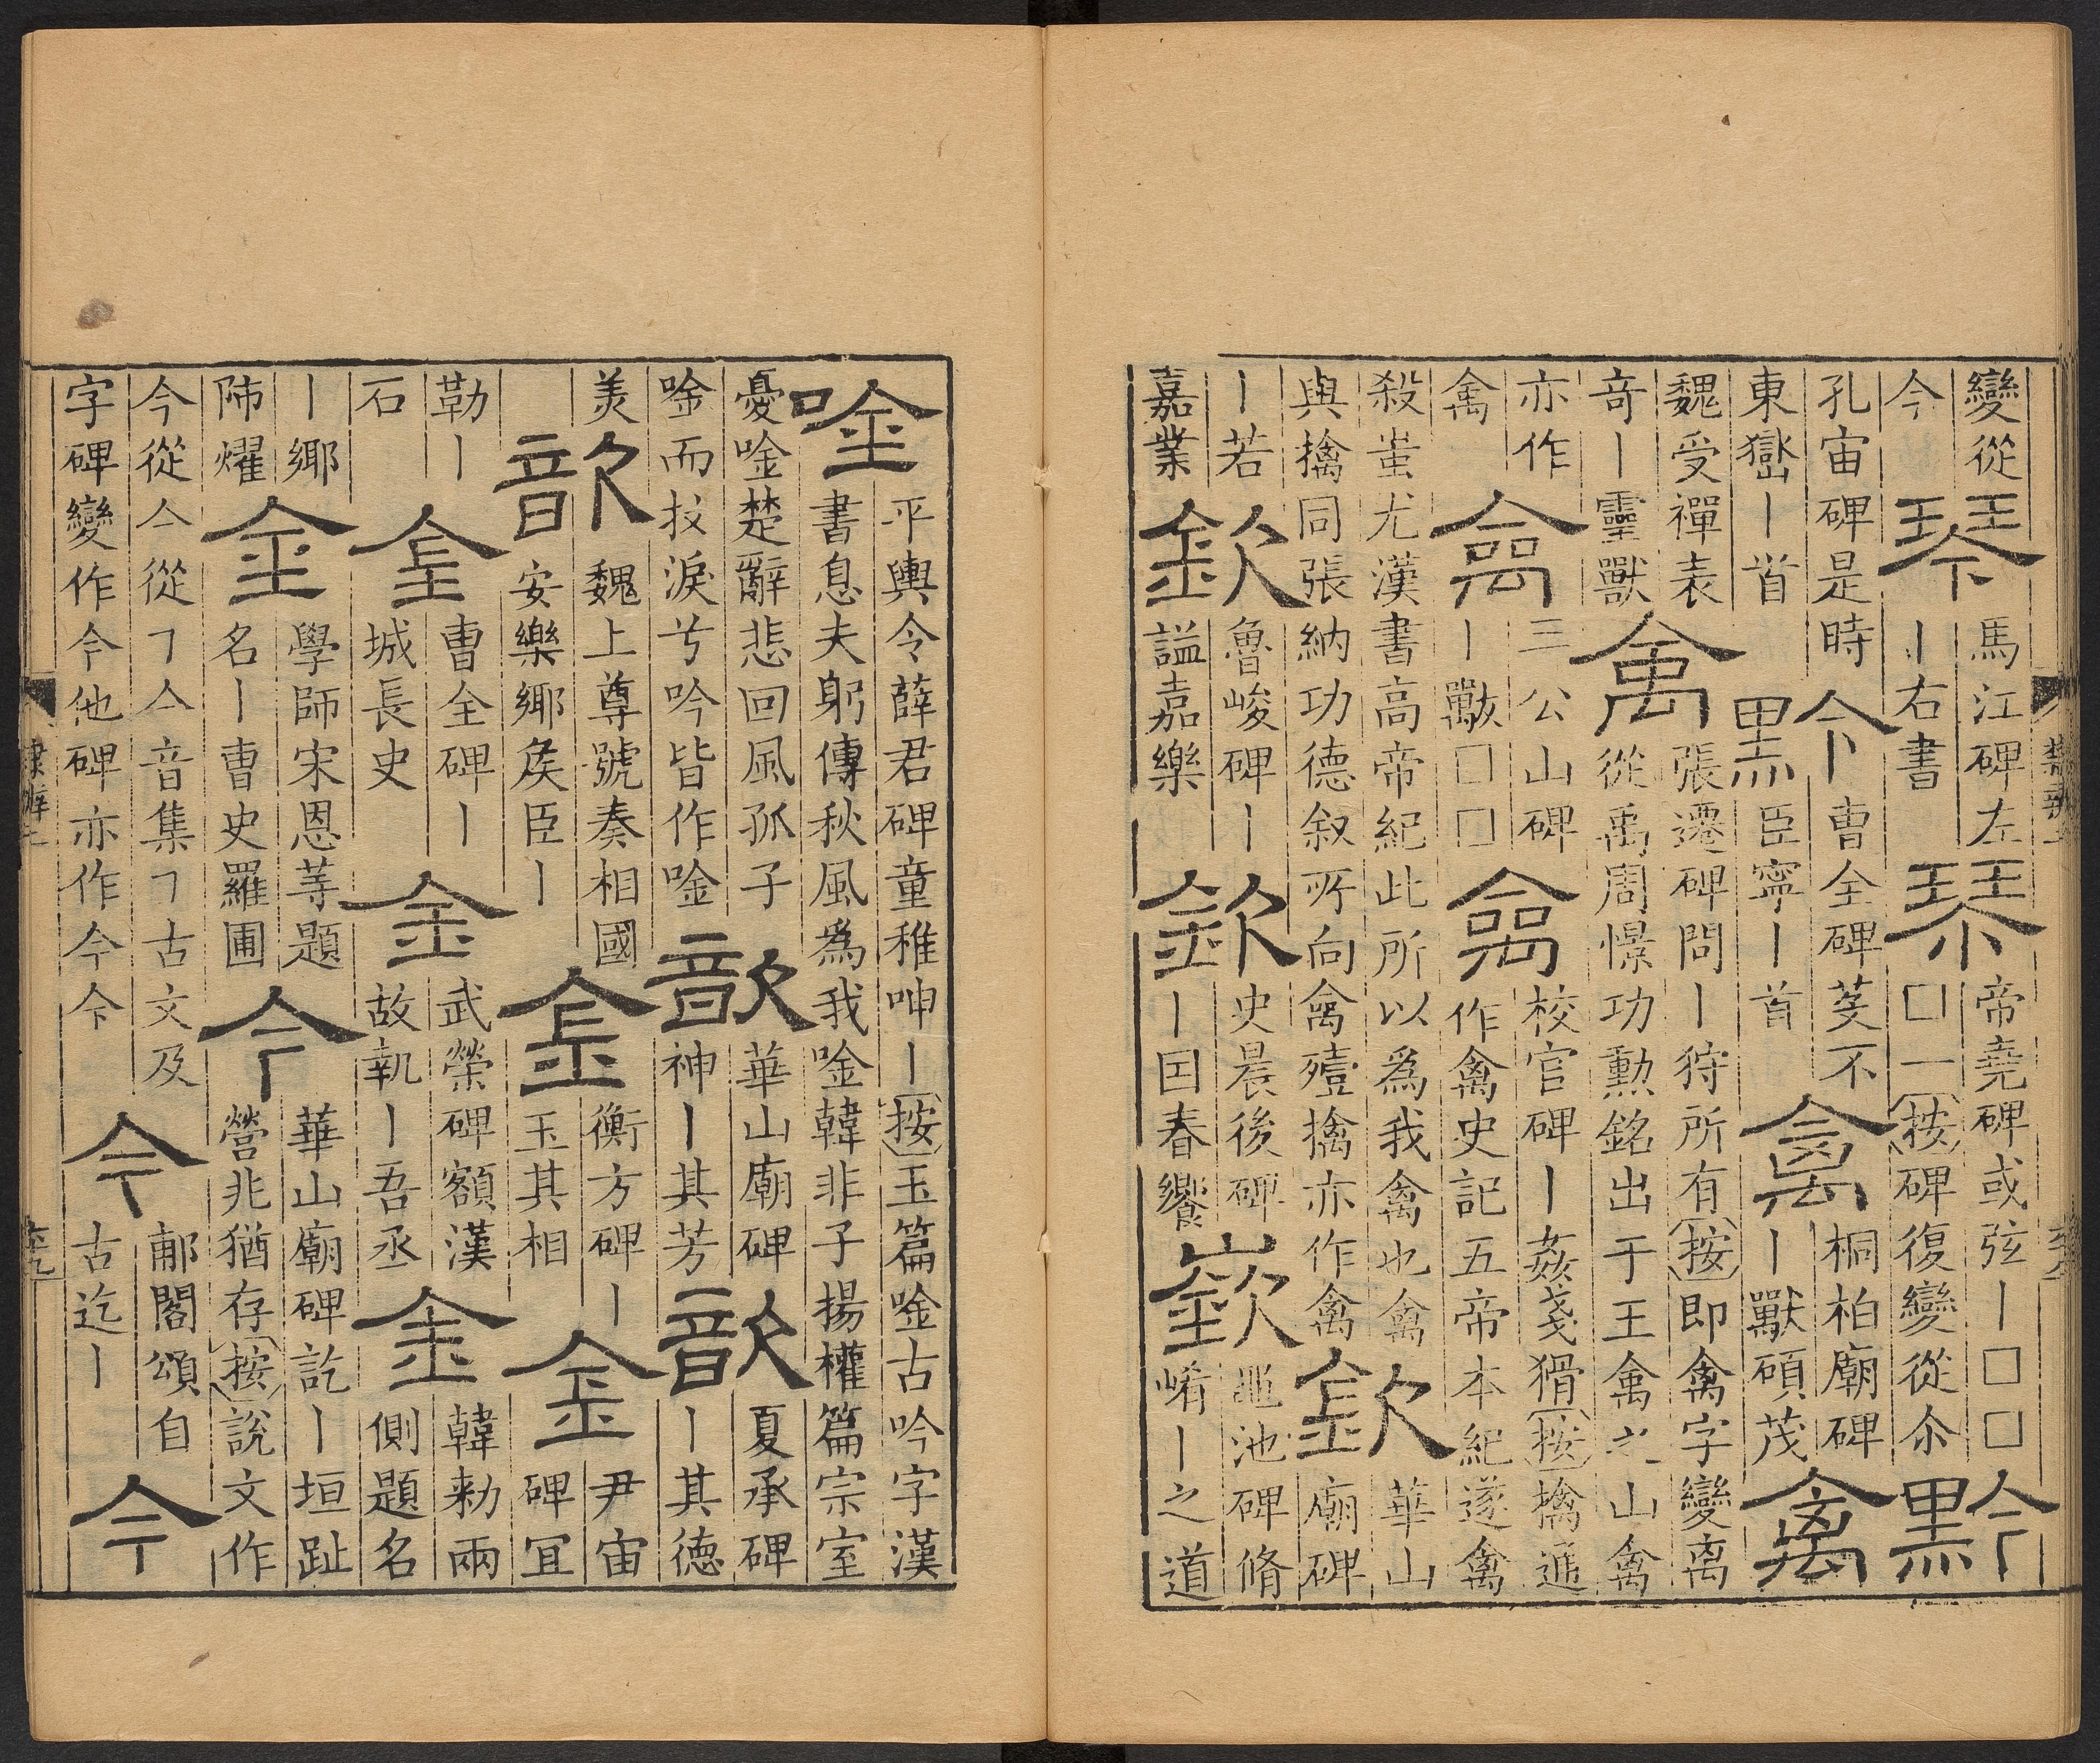 變從今琴馬江碑左丨右書琴帝堯碑或弦丨□□□一按碑復變從尒黔
孔宙碑是時東嶽丨首黔曹全碑芟不臣寧丨首禽桐柏廟碑丨獸碩茂禽
魏受禪表奇丨靈獸禽張遷碑問丨狩所有按即禽字變离從禹周憬功勳銘出于王禽之山禽
亦作禽禽三公山碑丨獸□□禽校官碑丨姦戔猾按擒遁作禽史記五帝本紀遂禽
殺蚩尤漢書高帝紀此所以爲我禽也禽與擒同張納功德叙所向禽殪擒亦作禽欽華山廟碑
丨若嘉業欽魯峻碑丨謚嘉樂欽史晨後碑丨囙春饗嶔黽池碑脩崤丨之道
唫平輿令薛君碑童稚呻丨按玉篇唫古吟字漢書息夫躬傳秋風爲我唫韓非子揚權篇宗室
憂唫楚辭悲回風孤子唫而抆淚兮吟皆作唫歆華山廟碑神丨其芳歆夏承碑丨其徳
美歆魏上尊號奏相國安樂鄉矦臣丨金衡方碑丨玉其相金尹宙碑冝
勒丨石金曹全碑丨城長史金武榮碑額漢故執丨吾丞金韓勑兩側題名
丨鄉師燿金學師宋恩等題名丨曹史羅圃今華山廟碑訖丨垣趾營兆猶存按說文作
今從亼從㇇亼音集㇇古文及字碑變作今他碑亦作今仒今郙閣頌自古迄丨今
隸辨